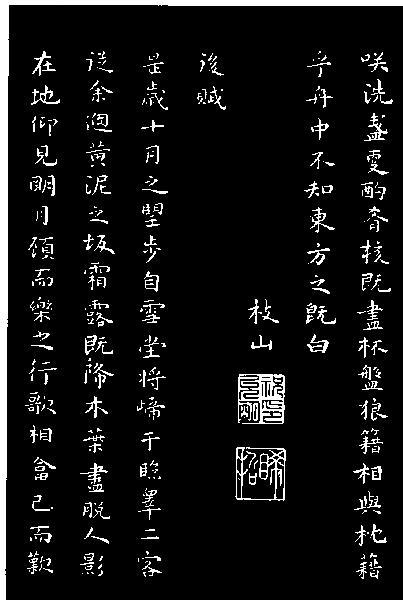 咲洗盞更酌肴核既盡杯盤狼籍相與枕籍
乎舟中不知東方之既白
枝山
後賦
是歲十月之朢步自雪堂将歸于臨皋二客
從余過黃泥之坂霜露既降木葉盡脱人影
在地仰見明月顧而樂之行歌相畣已而歎